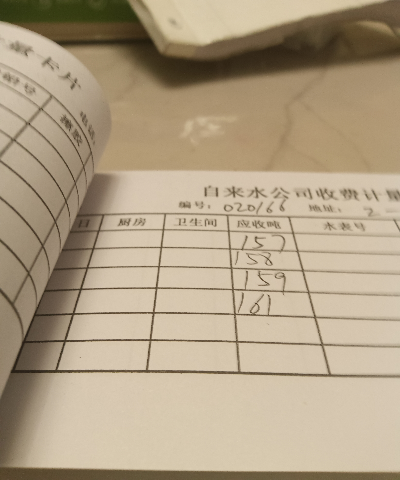 量卡片
自来水公司收费计量
编号: 020166 地址: 2
日 厨房 卫生间 应收吨 水表号
157
158
159
161